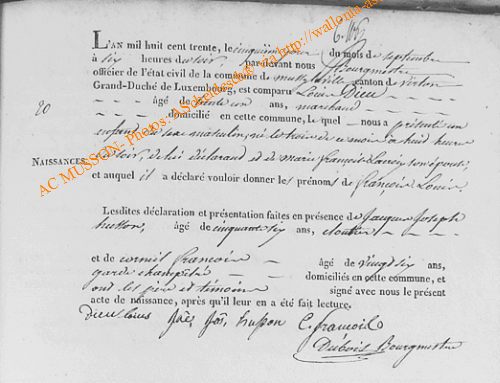 L'AN mil huit cent trente, le cinquième jour du mois de septembre
à six heures du soir, pardevant nous Bourgmestre
officier de l'état civil de la commune de canton de Virton
Grand-Duché de Luxembourg, est comparu Louis Dieu
âgé de trente un ans, marchand
20
domicilié en cette commune, le quel nous a présenté un
enfant du sexe masculin, né le trois de ce mois à huit heures
NAISSANCES. du soir, de lui déclarant et de marie françoise son épouse
et auquel il a déclaré vouloir donner les prénoms de françois Louis
Lesdites déclaration et présentation faites en présence de Jacques Joseph
husson, âgé de cinquante six ans, cloutier
et de corneil francois âgé de vingt six ans,
garde champêtre domiciliés en cette commune, et
ont les père et témoins signé avec nous le présent
acte de naissance, après qu'il leur en a été fait lecture.
Dieu Louis Jos husson C. françois
Dubois Bourgmestre
AC MUSSON- Photos: http://wallonia-as